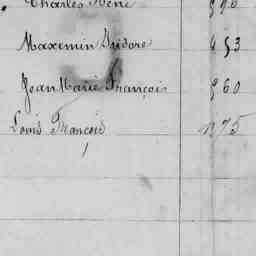 Charles René
Maxemin Isidore 453
Jean Marie François 860
Louis François 75